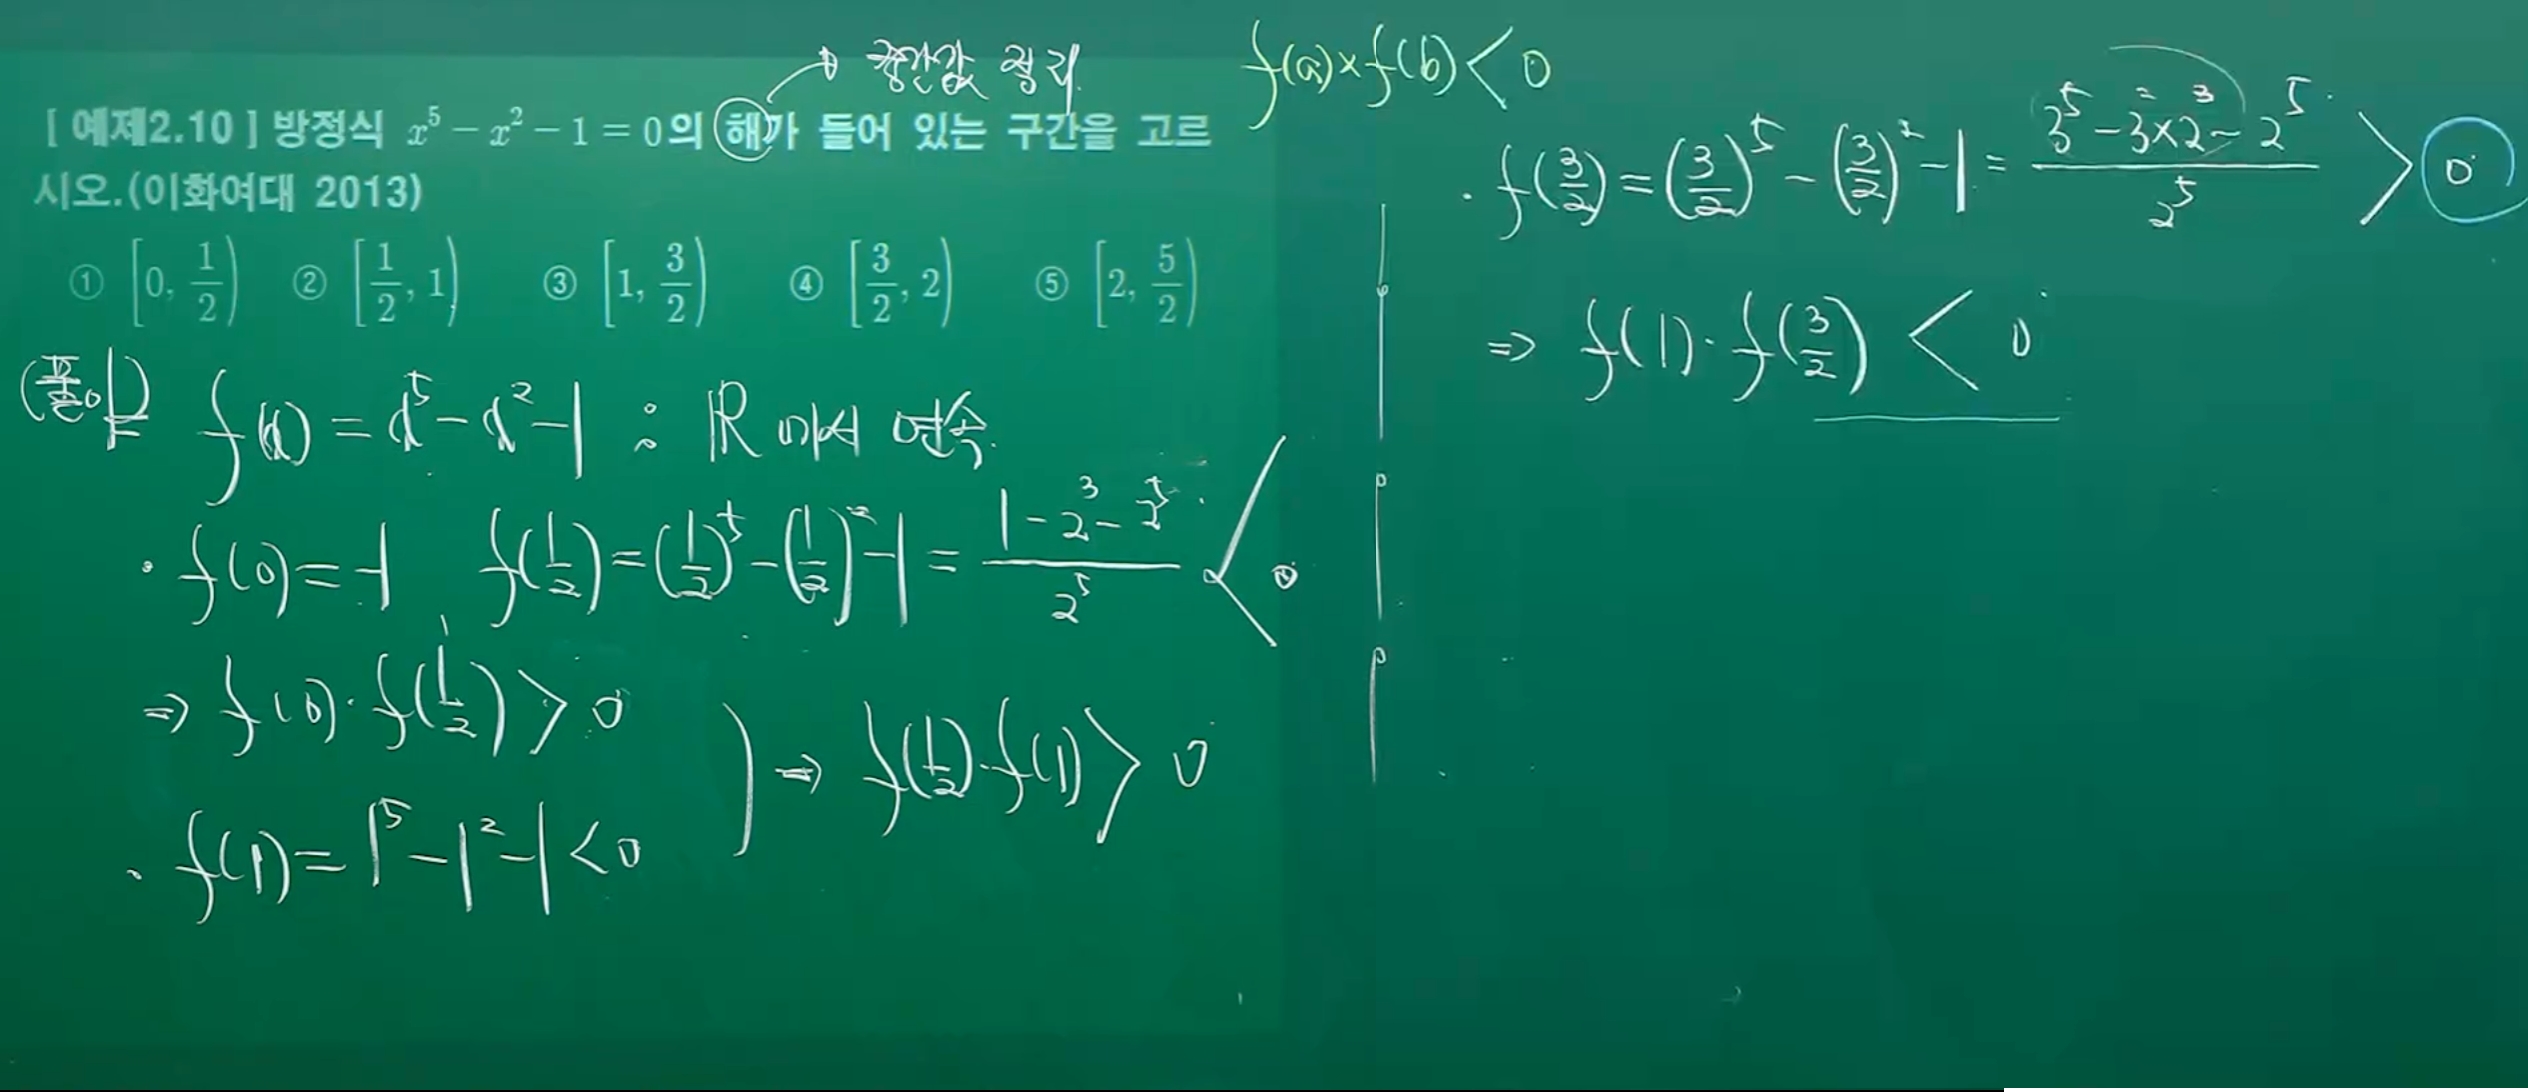 중간값 정리
[ 예제2.10 ] 방정식 x⁵ − x² − 1 = 0의 해가 들어 있는 구간을 고르
시오.(이화여대 2013)
① [0, 1/2) ② [1/2, 1) ③ [1, 3/2) ④ [3/2, 2) ⑤ [2, 5/2)
(풀이) f(x) = x⁵ − x² − 1 : ℝ에서 연속.
· f(0) = −1 f(1/2) = (1/2)⁵ − (1/2)² − 1 = (1 − 2³ − 2⁵)/2⁵ < 0
⇒ f(0)·f(1/2) > 0
· f(1) = 1⁵ − 1² − 1 < 0
) ⇒ f(1/2)·f(1) > 0
f(a)×f(b) < 0
· f(3/2) = (3/2)⁵ − (3/2)² − 1 = (3⁵ − 3²×2³ − 2⁵)/2⁵ > 0
⇒ f(1)·f(3/2) < 0